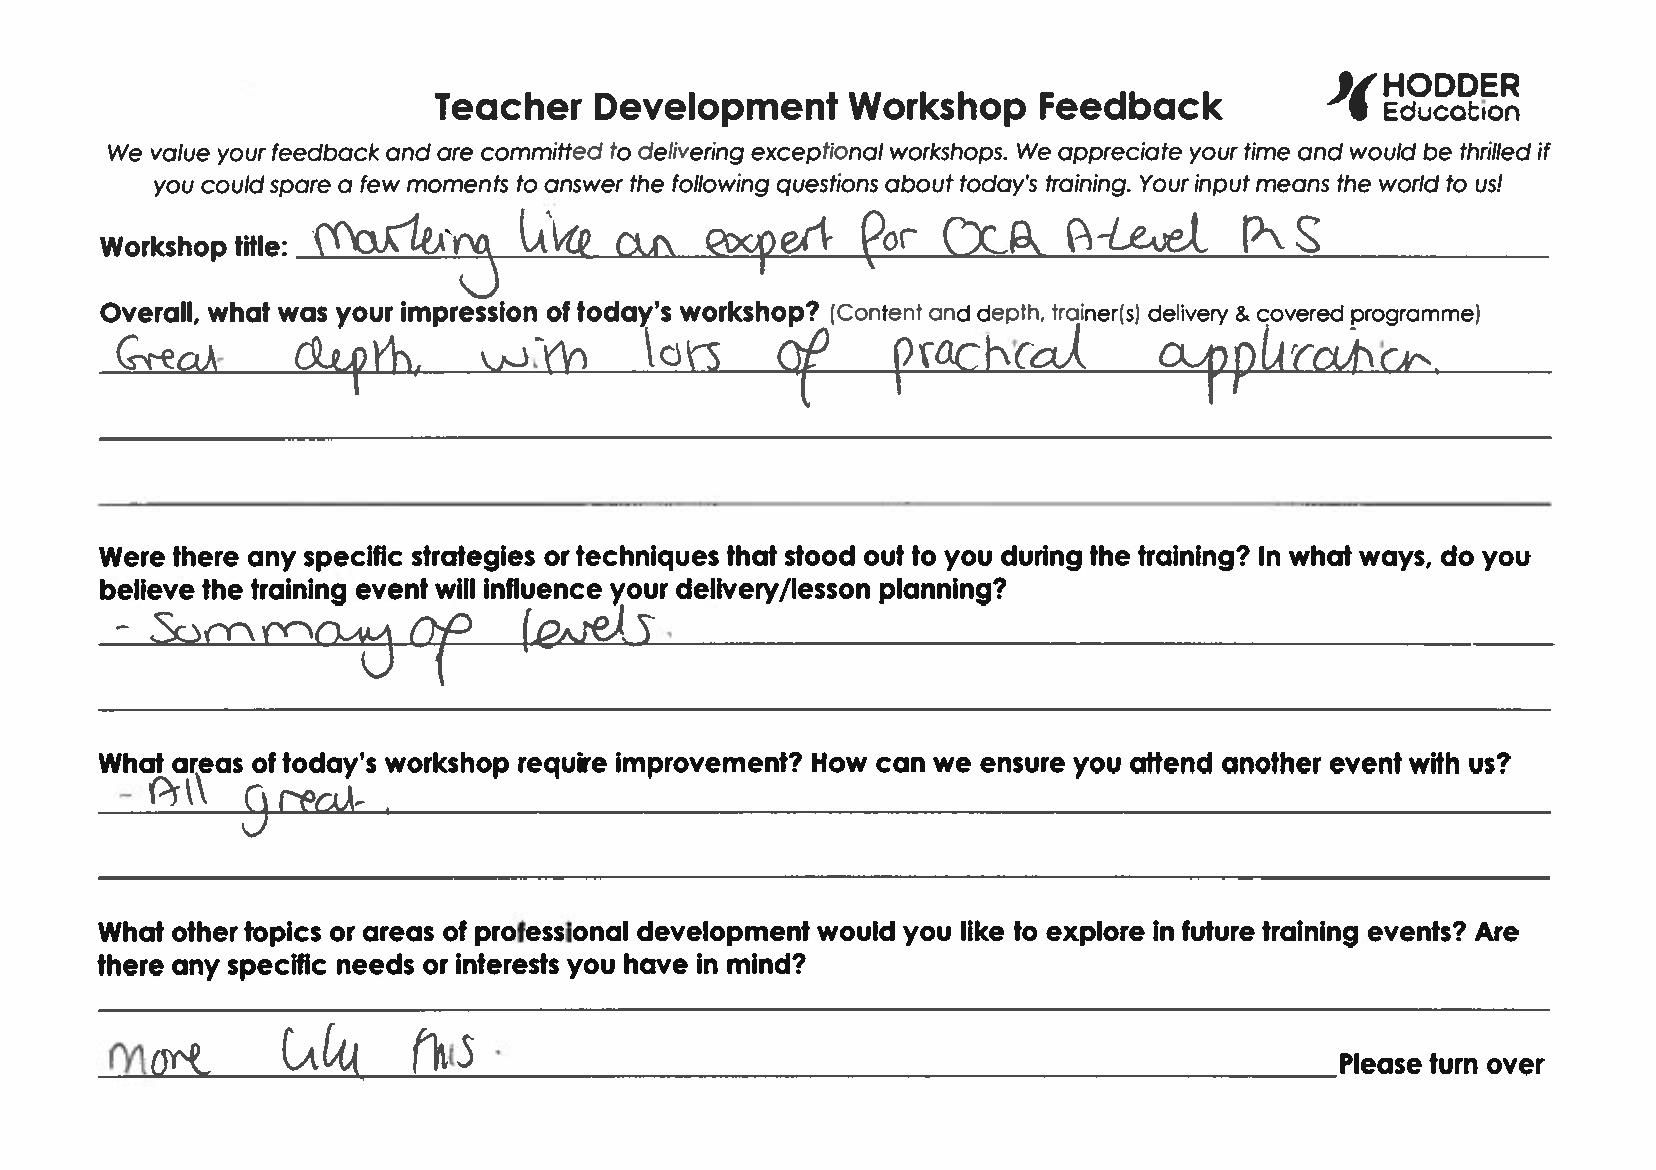 HODDER
Education
Teacher Development Workshop Feedback
We value your feedback and are committed to delivering exceptional workshops. We appreciate your time and would be thrilled if
you could spare a few moments to answer the following questions about today's training. Your input means the world to us!
Workshop title: Marking like an expert for OCR A-Level RS
Overall, what was your impression of today's workshop? (Content and depth, trainer(s) delivery & covered programme)
Great depth, with lots of practical application.
Were there any specific strategies or techniques that stood out to you during the training? In what ways, do you
believe the training event will influence your delivery/lesson planning?
- Summary of levels.
What areas of today's workshop require improvement? How can we ensure you attend another event with us?
- All great.
What other topics or areas of professional development would you like to explore in future training events? Are
there any specific needs or interests you have in mind?
More like this.
Please turn over